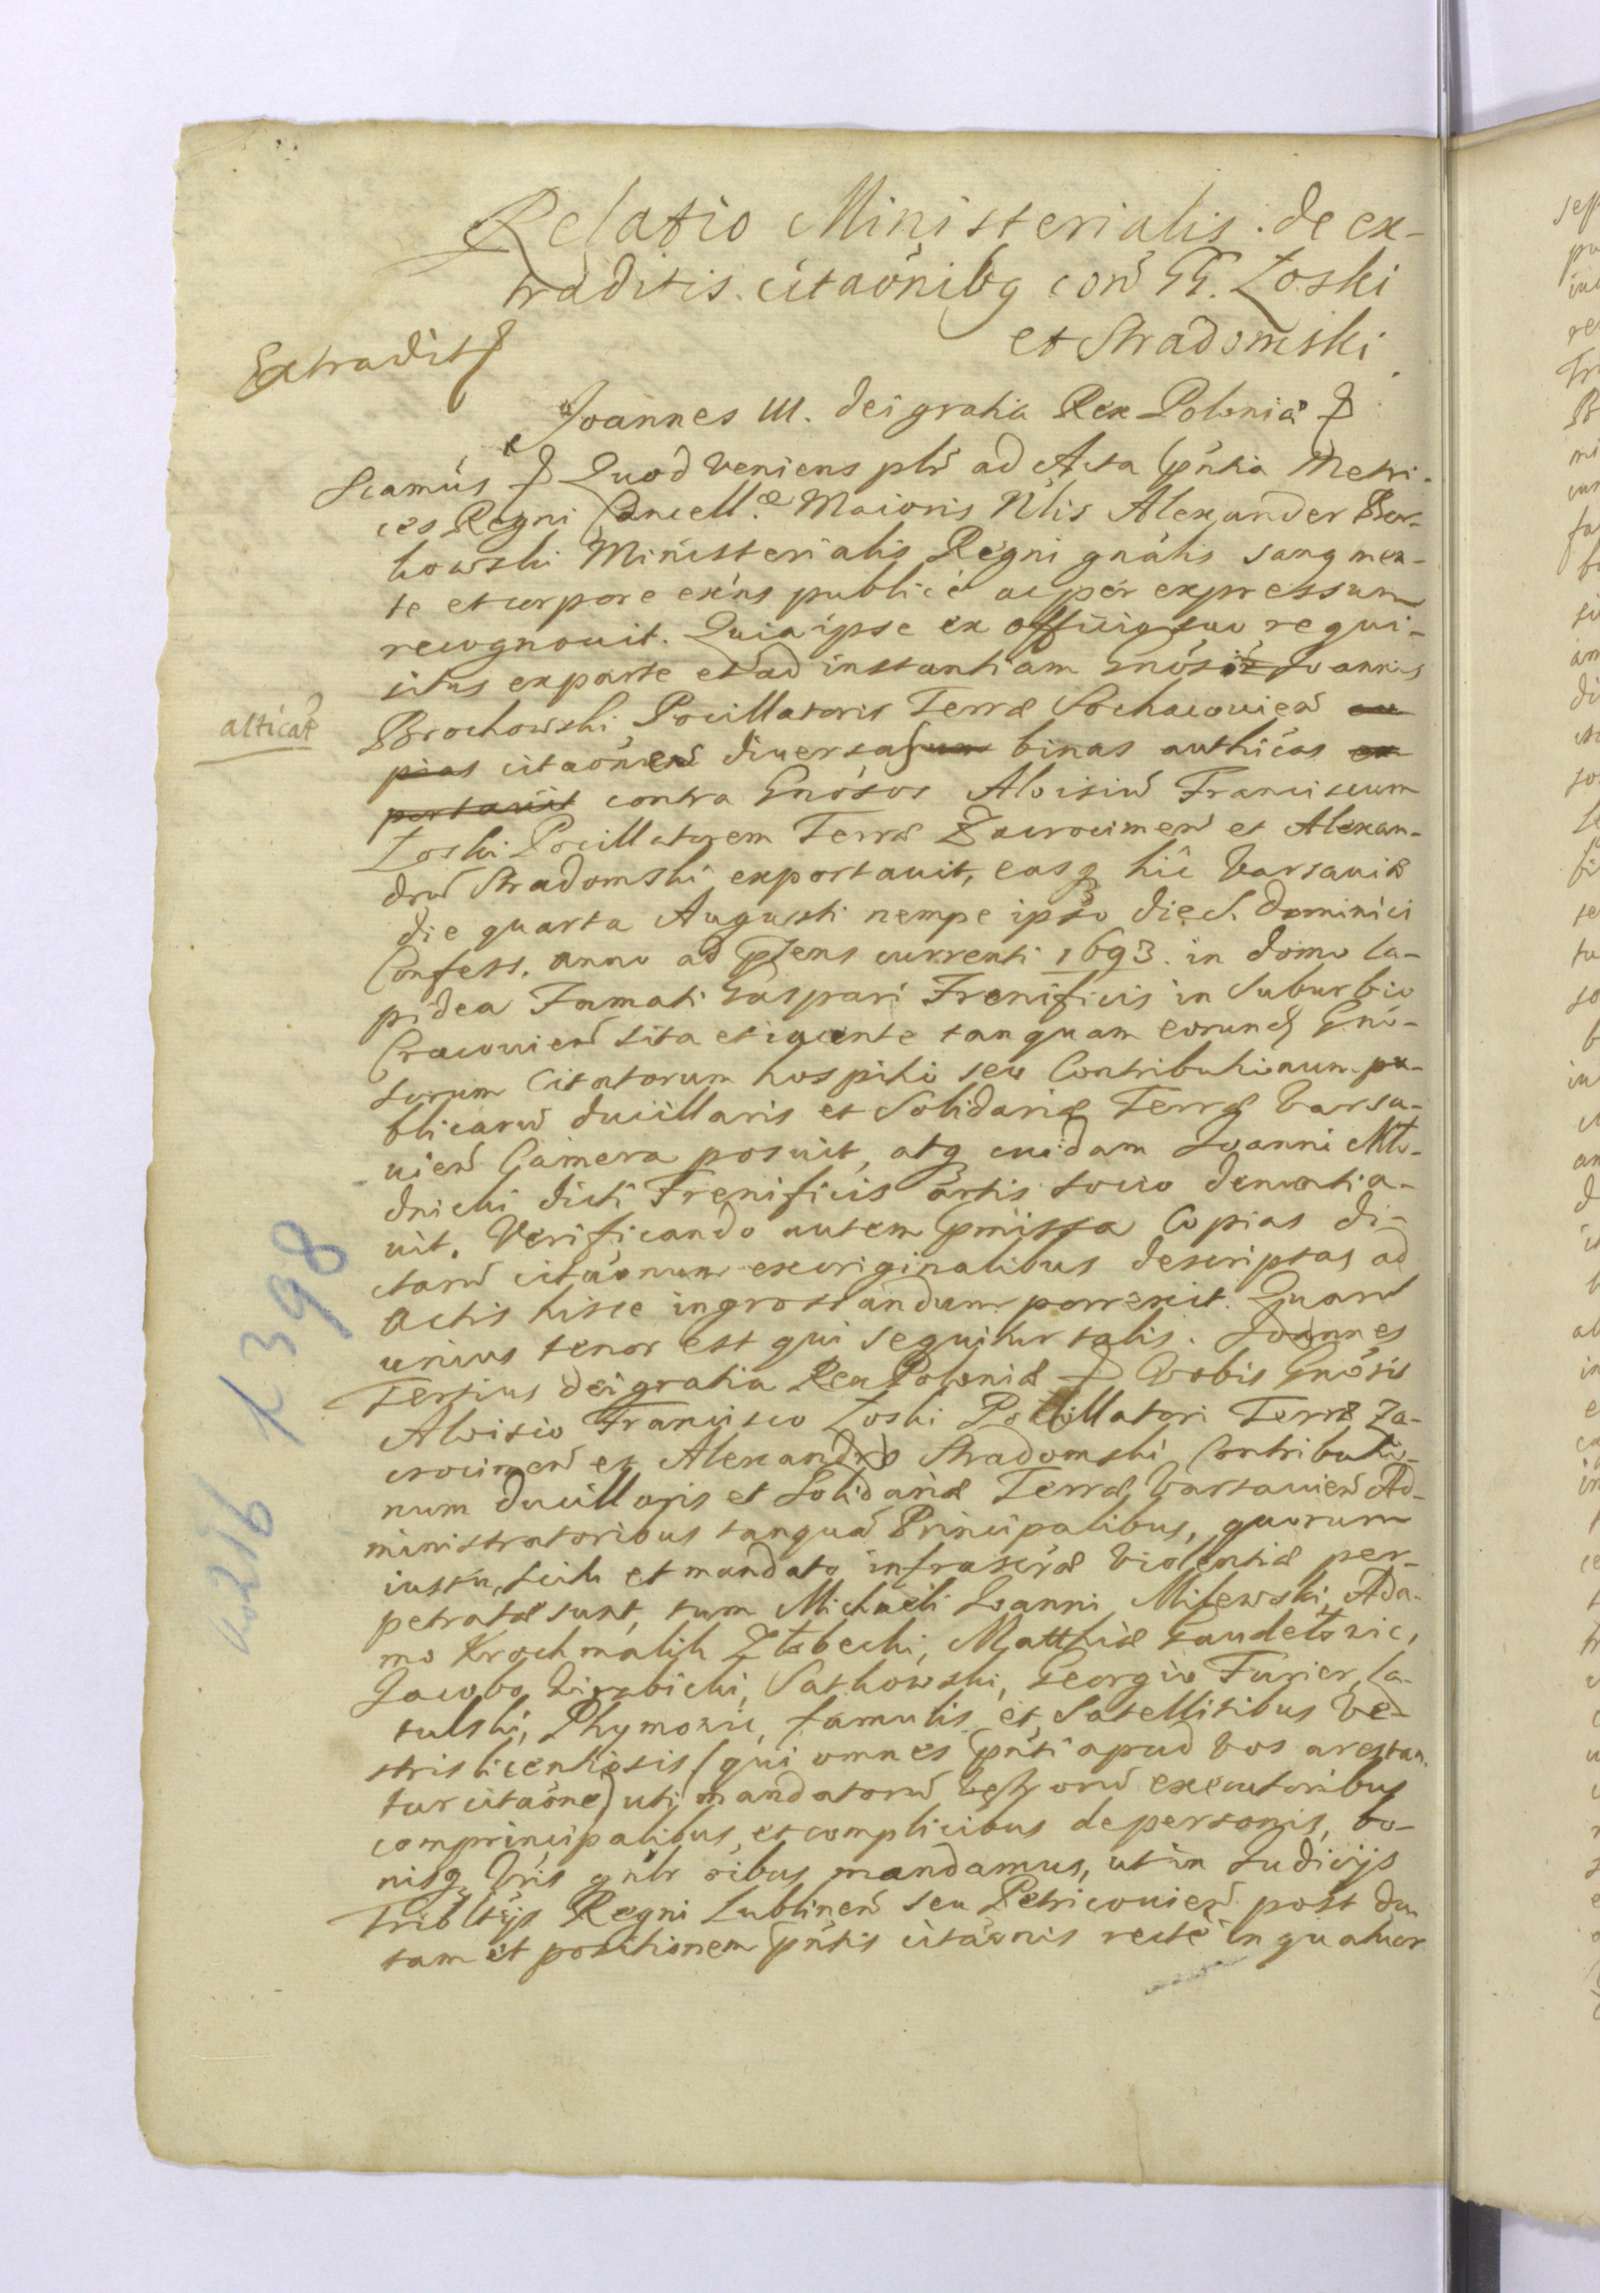 Relatio Ministerialis de ex-
traditis citaõnibq con̄ GG. Zoski
et Stradomski
Extradit
Joannes III. dei gratia Rex Poloniæ
Scamus Quod veniens plr̄ ad Acta pñtia Metri-
ces Regni Cancell.æ Maioris Nlis Alexander Bor-
kowski Ministerialis Regni gnalis sanq men-
te et corpore exñs publice ac per expressum
recognouit. Quia ipse ex officio suo requi-
situs ex parte et ad instantiam Gnosi Joannis
alticat
Brochowski Pocillatoris Terræ Sochacouien̄ co
pias citaõnes diuersas binas authicas ex
portauit contra Gnosos Aloisiū Franciscum
Zoski Pocillatorem Terræ Zacrocimen̄ et Alexan-
drū Stradomski exportauit, easq hic Varsauiæ
die quarta Augusti nempe ipso die S. Dominici
Confess. anno ad pñens currenti 1693. in domo la-
pidea Famati Gaspari Frenificis in Suburbio
Cracouien̄ sita et iacente tanquam eorund Gno-
sorum Citatorum hospitio seu Contributionum pu-
blicarū ducillaris et Solidariæ Terræ Varsa-
uien̄ Camera posuit, atq cuidam Joanni Mło-
dnicki dicti Frenificis artis socio denuntia-
uit. Verificando autem pmissa Copias di-
ctarū citaõnum ex originalibus descriptas ad
Actis hisce ingrossandum porrexit. Quarū
unius tenor est qui sequitur talis. Joannes
Tertius Dei gratia Rex Poloniæ Vobis Gnosis
Aloisio Francisco Zoski Pocillatori Terræ Za-
crocimen̄ et Alexandro Stradomski Contributio-
num Ducillaris et Solidariæ Terræ Varsauien̄ Ad-
ministratoribus tanquā Principalibus, quorum
iussu, scitu et mandato infrascriptæ violentiæ per-
petratæ sunt, tum Michaeli Joanni Milewski, Ada-
mo Krochmalik Złobecki, Matthiæ Gaudetowic,
Jacobo Wierzbicki, Satkowski, Georgio Furier, Ca-
tulski, Rhymowic, famulis et Satellitibus Ve-
stris licentiosis (qui omnes pñti apud vos arestan
tur citaõne) uti mandatorū Vestrorū executoribus
comprincipalibus, et complicibus de personis, bo-
nisq Vris gnlr oibus mandamus, ut in Judicijs
Triblijs Regni Lublinen̄ seu Petricouien̄ post da
tam et positionem pñtis citaõnis recte in quatuor
K 398